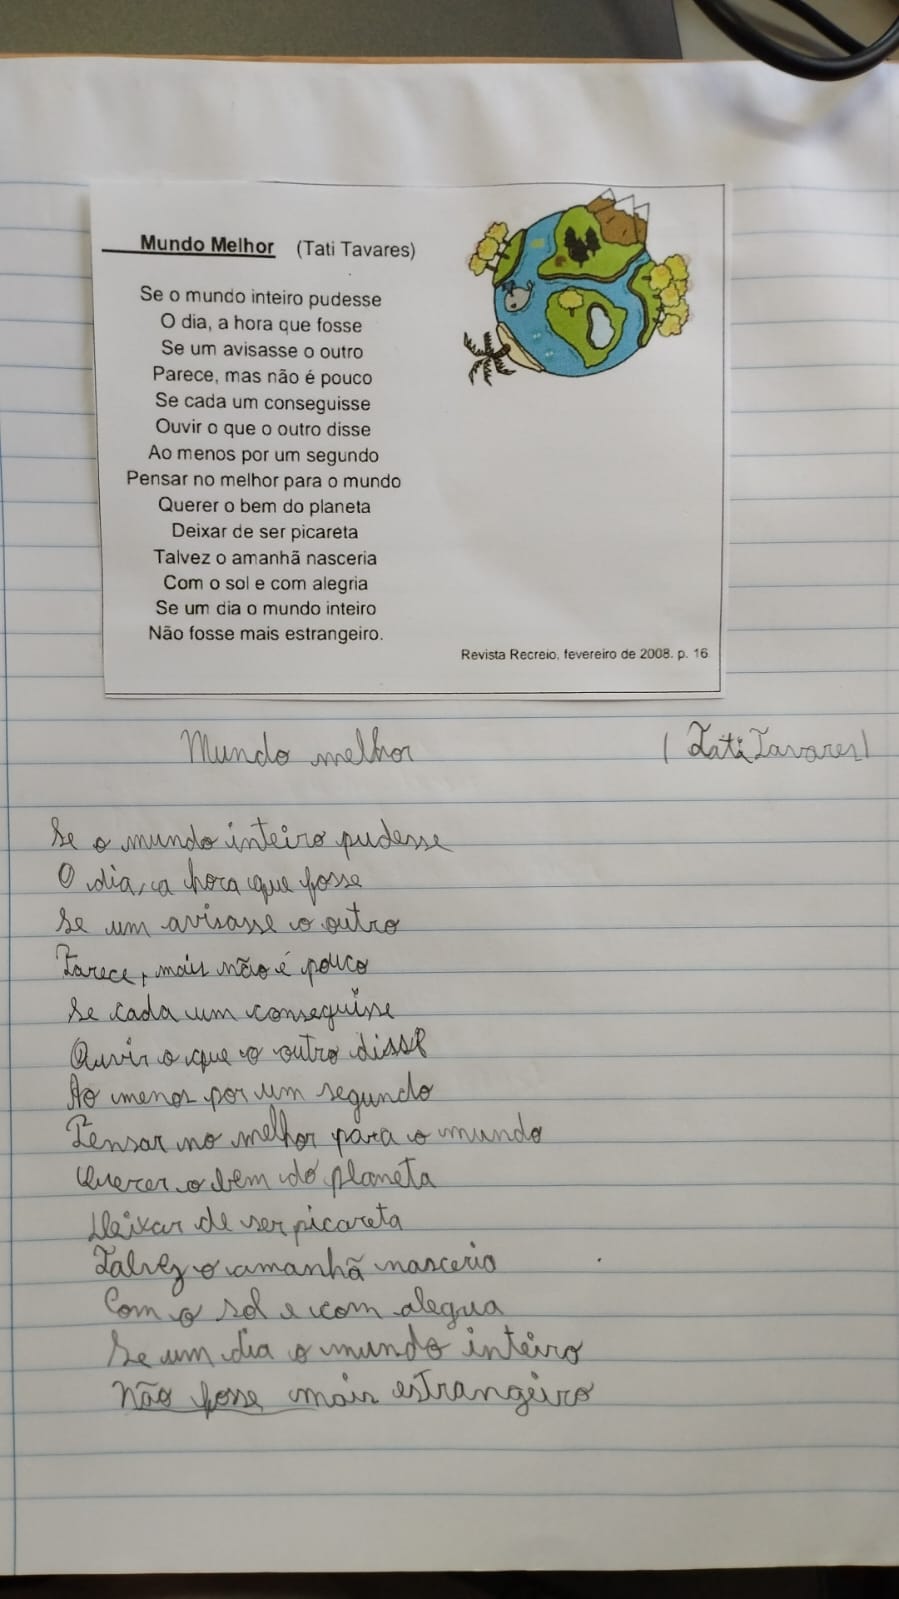 Mundo Melhor (Tati Tavares)
Se o mundo inteiro pudesse
O dia, a hora que fosse
Se um avisasse o outro
Parece, mas não é pouco
Se cada um conseguisse
Ouvir o que o outro disse
Ao menos por um segundo
Pensar no melhor para o mundo
Querer o bem do planeta
Deixar de ser picareta
Talvez o amanhã nasceria
Com o sol e com alegria
Se um dia o mundo inteiro
Não fosse mais estrangeiro.
Revista Recreio, fevereiro de 2008. p. 16
Mundo melhor (Tati Tavares)
Se o mundo inteiro pudesse
O dia, a hora que fosse
Se um avisasse o outro
Parece, mais não é pouco
Se cada um conseguisse
Ouvir o que o outro disse
Ao menos por um segundo
Pensar no melhor para o mundo
Querer o bem do planeta
Deixar de ser picareta
Talvez o amanhã nasceria
Com o sol e com alegria
Se um dia o mundo inteiro
Não fosse mais estrangeiro